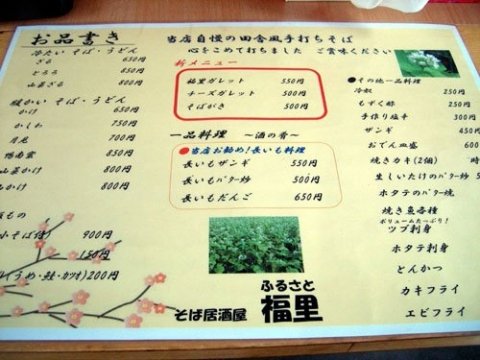 お品書き
冷たいそば・うどん
ざる 650円
とろろ 850円
山菜ざる 850円
暖かいそば・うどん
かけ 650円
かしわ 750円
月見 700円
鴨南蛮 850円
山菜かけ 800円
かけ 800円
900円
150円
うめ・鮭・カツオ)200円
当店自慢の田舎風手打ちそば
心をこめて打ちました ご賞味ください
新メニュー
福里ガレット 550円
チーズガレット 500円
そばがき 500円
一品料理 ~酒の肴~
●当店お勧め!長いも料理
長いもザンギ 550円
長いもバター炒 500円
長いもだんご 650円
ふるさと
そば居酒屋 福里
●その他一品料理
冷奴 250円
もずく酢 250円
手作り塩辛 300円
ザンギ 450円
おでん皿盛 600円
焼きカキ(2個) 時
生しいたけのバター炒
ホタテのバター焼
焼き魚各種
ボリュームたっぷり!
ツブ刺身
ホタテ刺身
とんかつ
カキフライ
エビフライ